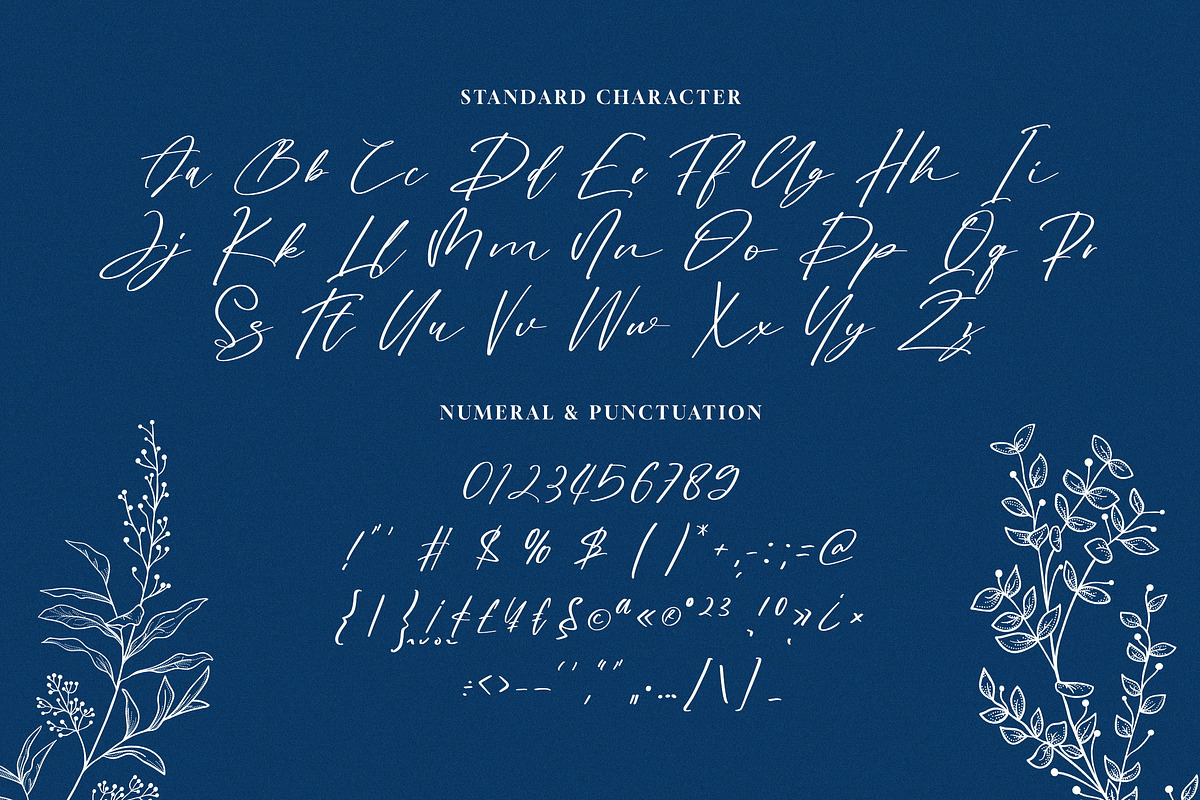 STANDARD CHARACTER
Aa Bb Cc Dd Ee Ff Gg Hh Ii
Jj Kk Ll Mm Nn Oo Pp Qq Rr
Ss Tt Uu Vv Ww Xx Yy Zz
NUMERAL & PUNCTUATION
0123456789
! " ' # $ % $ ( ) * + , - : ; = @
{ | } ¡ ¢ £ ¥ § © ª « ® ° 2 3 ¸ 1 º » ¿ ×
÷ < > – — ‘ ’ ‚ “ ” „ • … [ \ ] _